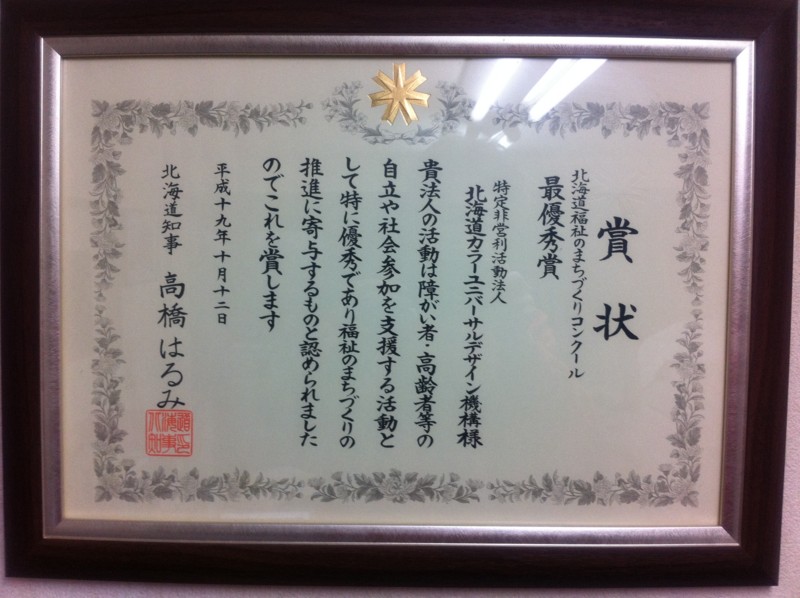 賞状
北海道福祉のまちづくりコンクール
最優秀賞
特定非営利活動法人
北海道カラーユニバーサルデザイン機構様
貴法人の活動は障がい者・高齢者等の
自立や社会参加を支援する活動と
して特に優秀であり福祉のまちづくりの
推進に寄与するものと認められました
のでこれを賞します
平成十九年十月十二日
北海道知事 高橋はるみ